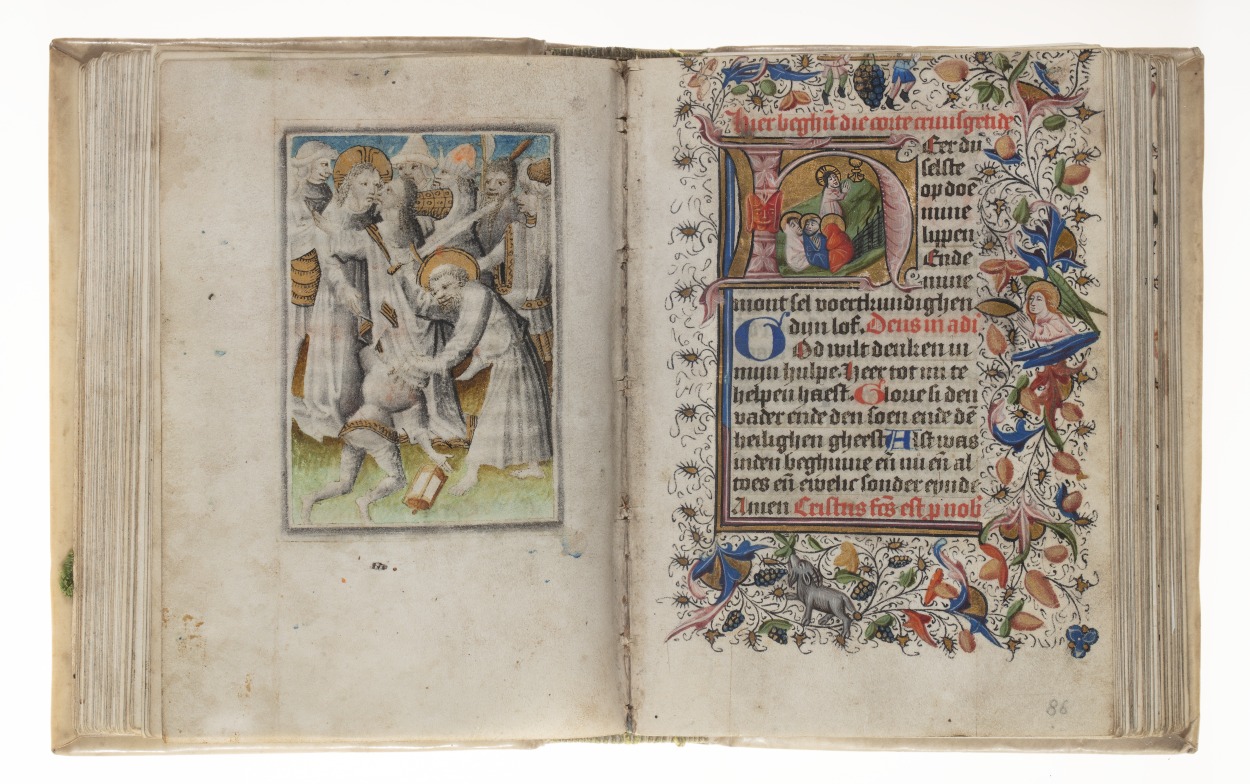 Hier beghīt die corte cruusgetide
Eer du
selste
op doe
mine
lypen
Ende
mine
mont sel voertkundighen
dijn lof. Deus in adi
God wilt denken in
mijn hulpe. Heer tot mi te
helpen haest. Glorie si den
vader ende den soen ende dē
heilighen gheest Alst was
inden beghinne eñ nu eñ al
toes eñ ewelic sonder eynde
Amen Cristus fc̄s est p nob̄
86